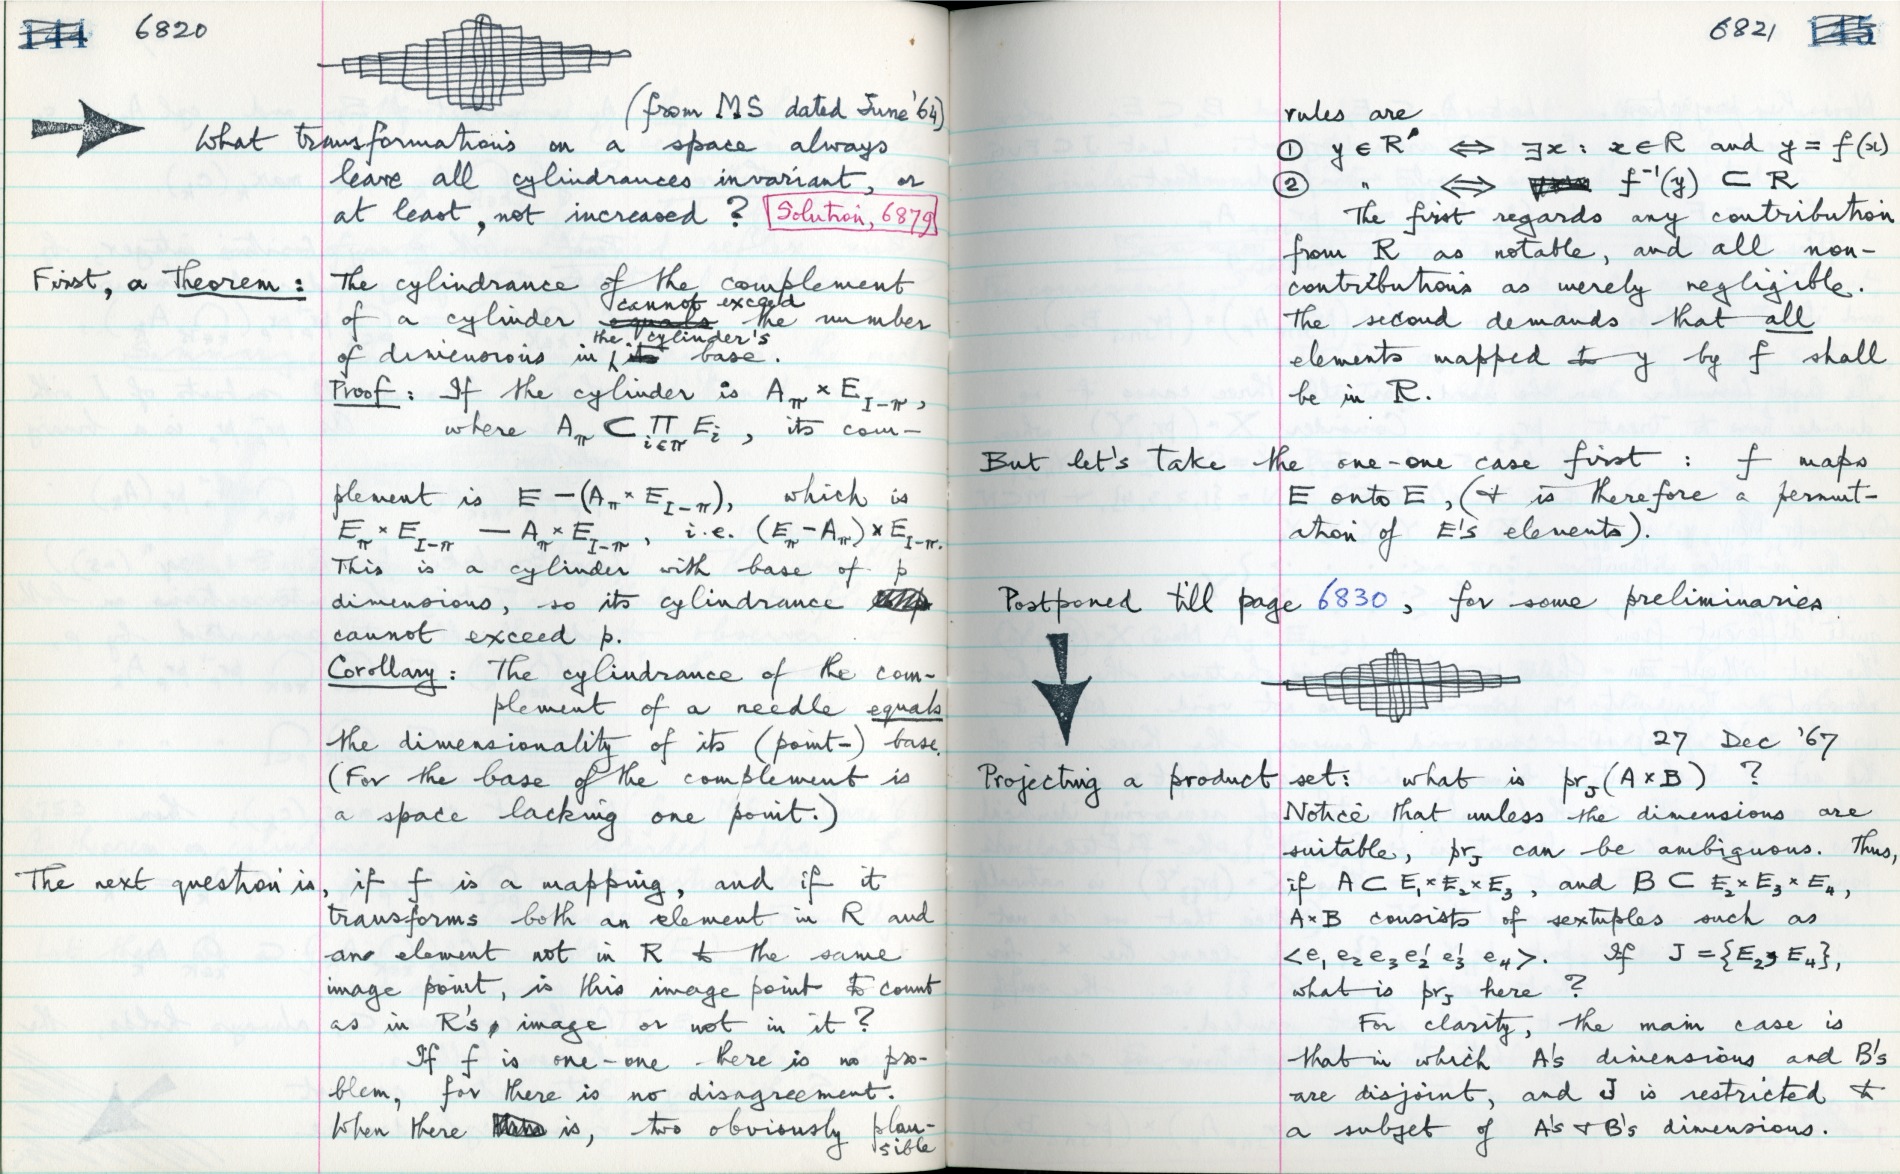 144 6820
(from MS dated June '64)
What transformations on a space always
leave all cylindrances invariant, or
at least, not increased? Solution, 6879
First, a Theorem: The cylindrance of the complement
cannot exceed
of a cylinder equals the number
the cylinder's
of dimensions in its base.
Proof: If the cylinder is A_π × E_{I-π},
where A_π ⊂ ∏_{i∈π} E_i, its com-
plement is E − (A_π × E_{I-π}), which is
E_π × E_{I-π} — A_π × E_{I-π}, i.e. (E_π − A_π) × E_{I-π}.
This is a cylinder with base of p
dimensions, so its cylindrance
cannot exceed p.
Corollary: The cylindrance of the com-
plement of a needle equals
the dimensionality of its (point-) base.
(For the base of the complement is
a space lacking one point.)
The next question is, if f is a mapping, and if it
transforms both an element in R and
an element not in R to the same
image point, is this image point to count
as in R's image or not in it?
If f is one-one there is no pro-
blem, for there is no disagreement.
When there is, two obviously plau-
sible
6821 145
rules are
① y ∈ R' ⟺ ∃x : x ∈ R and y = f(x)
② " ⟺ f⁻¹(y) ⊂ R
The first regards any contribution
from R as notable, and all non-
contributions as merely negligible.
The second demands that all
elements mapped to y by f shall
be in R.
But let's take the one-one case first: f maps
E onto E, (& is therefore a permut-
ation of E's elements).
Postponed till page 6830, for some preliminaries
27 Dec '67
Projecting a product set: what is pr_J(A×B) ?
Notice that unless the dimensions are
suitable, pr_J can be ambiguous. Thus,
if A ⊂ E₁×E₂×E₃, and B ⊂ E₂×E₃×E₄,
A×B consists of sextuples such as
<e₁ e₂ e₃ e₂' e₃' e₄>. If J = {E₂, E₄},
what is pr_J here?
For clarity, the main case is
that in which A's dimensions and B's
are disjoint, and J is restricted to
a subset of A's & B's dimensions.